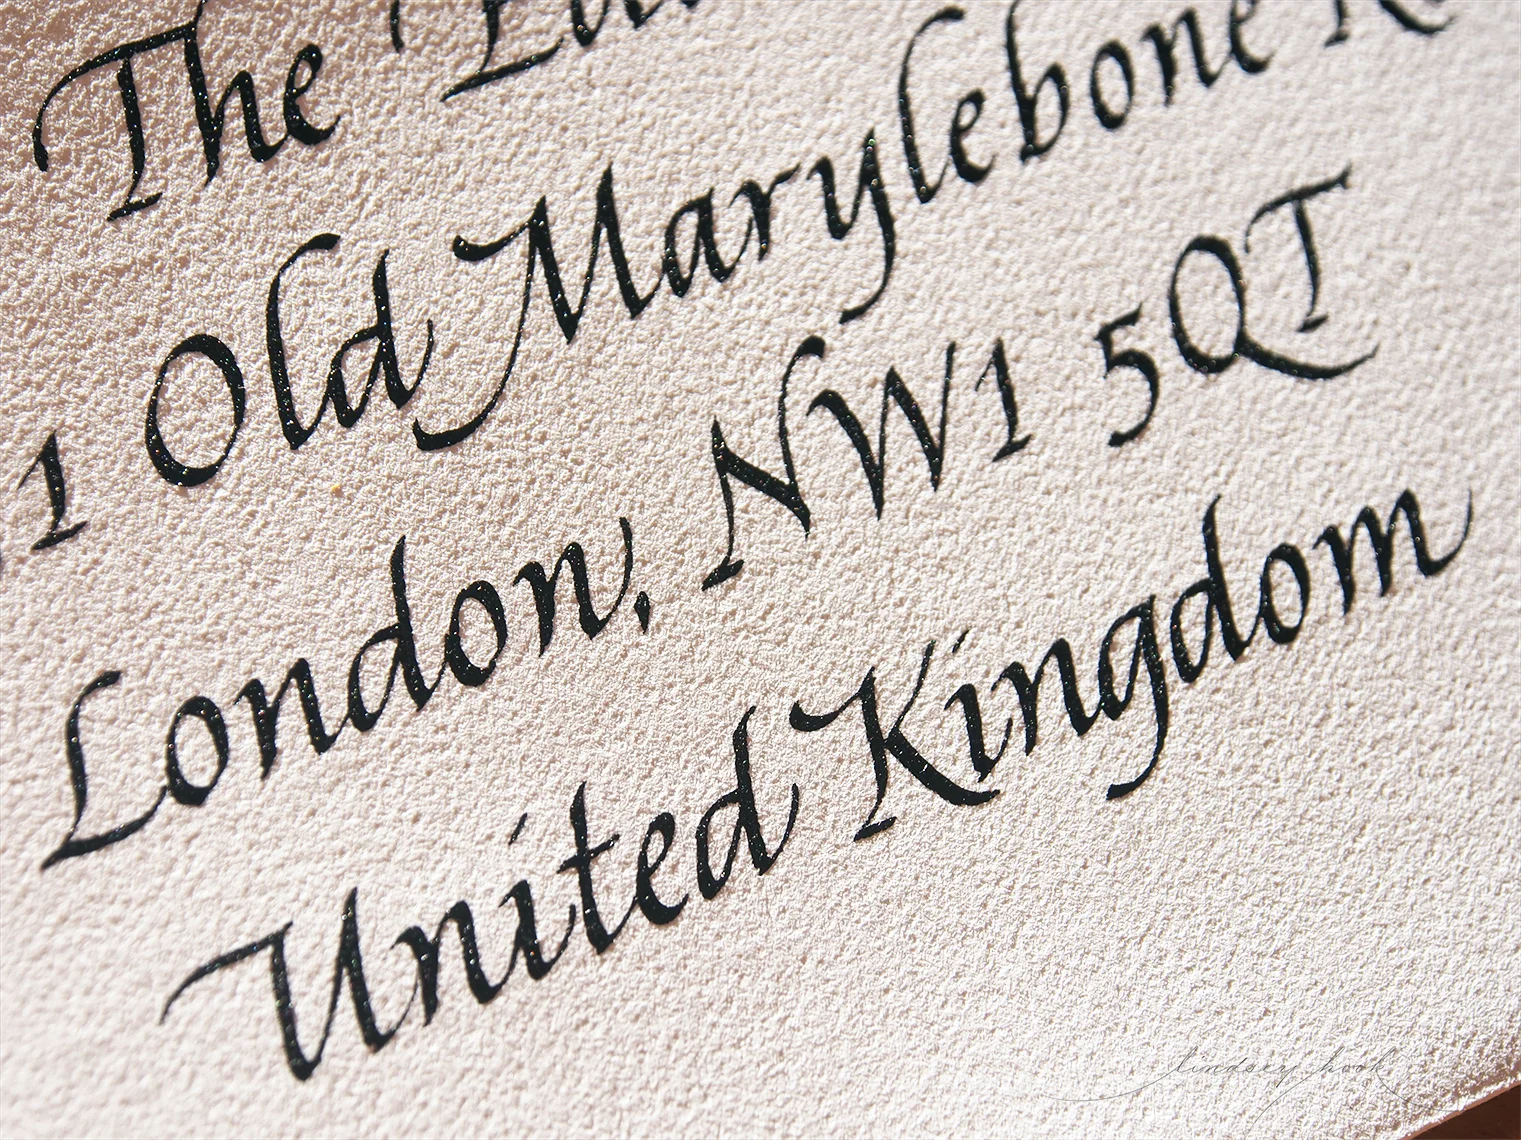 The
1 Old Marylebone
London, NW1 5QT
United Kingdom
lindsey hook